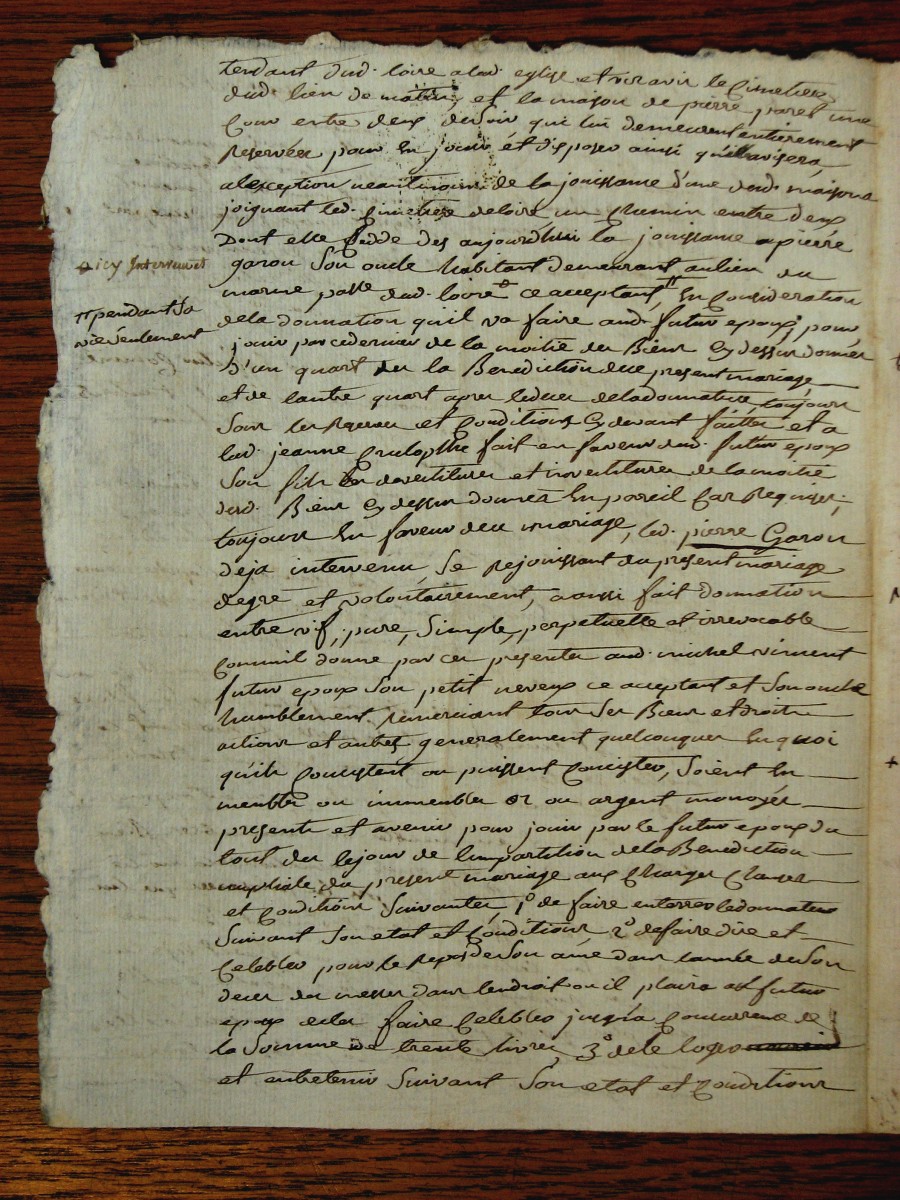 tendant dud. loire a lad. eglise et vis avis le Cimetiere
dud. lieu de matin, et la maison de pierre paret une
Cour entre deux du soir qui lui demeurent entierement
reservées pour en jouir et disposer ainsi qu'elle avisera
alexception neantmoins de la jouissance d'une desd. maisons
joignant led. Cimetiere de loire un Chemin entre deux
Dont elle Cedde des aujourdhui la jouissance a pierre
garon Son oncle habitant demeurant au lieu du
+ icy Intervenu et
marine psse dud. loire + ce acceptant, " En Consideration
" pendant Sa
vie Seulement
de la donnation qu'il va faire aud. futur epoux, pour
jouir par ce dernier de la moitié des Biens Cy dessus donnés
d'un quart des la Benediction du present mariage
et de l'autre quart apres le deces de la donnatrice toujours
Sous les reserves et Conditions Cy devant faittes et a
lad. jeanne fait en faveur dud. futur epoux
Son fils les devestitures et investitures de la moitié
desd. Biens Cy dessus donnés En pareil Cas Requises;
toujours En faveur du mariage, led. pierre Garon
deja intervenu, Se rejouissant du present mariage
de gré et volontairement, a aussi fait donnation
entre vif, pure, Simple, perpetuelle et irrevocable
Comm'il donne par ces presentes aud. michel vincent
futur epoux Son petit neveux ce acceptant et Son oncle
humblement remerciant tous Ses Biens et droits
actions et autres generalement quelconques En quoi
qu'ils Consistent ou puissent Consister, Soient En
meubles ou immeubles or ou argent monoyés
presents et avenir pour jouir par le futur epoux du
tout des le jour de l'impartition de la Benediction
nuptiale du present mariage aux Charges Clauses
et Conditions Suivantes, 1° de faire enterrer le donnateur
Suivant Son etat et Conditions 2° de faire dire et
Celebrer pour le repos de Son ame dans l'année de Son
deces des messes dans lendroit ou il plaira au futur
epoux de les faire Celebrer jusqu'a Concurrence de
la Somme de trente livres, 3° de le loger
et entretenir Suivant Son etat et Conditions